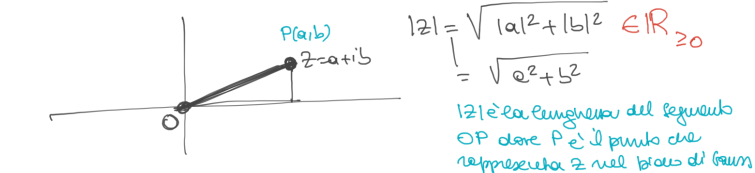 P(a,b)
z=a+ib
O
|z| = √|a|²+|b|² ∈ℝ≥0
= √a²+b²
|z| è la lunghezza del segmento
OP dove P è il punto che
rappresenta z nel piano di Gauss